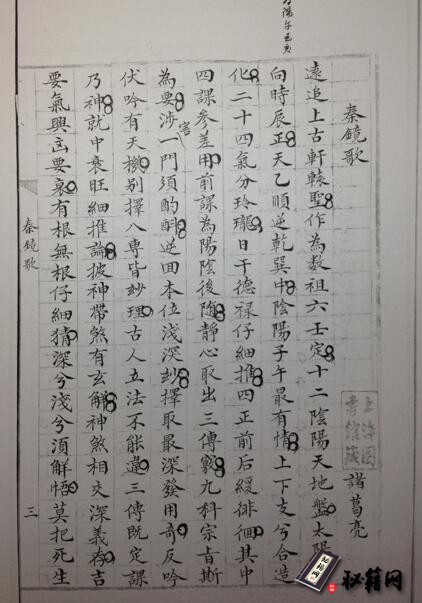 秦鏡歌
諸葛亮
遠追上古軒轅聖作為数祖六壬定十二陰陽天地盤太陽
向時辰正天乙順逆乾巽中陰陽子午最有情上下支兮合造
化二十四氣分玲瓏日干德禄仔細推四正前后緩徘徊其中
四課參差用前課為陽陰後随静心取出三傳竅九科宗旨斯
為要涉害一門須酌斟逆囬本位浅深玅擇取最深發用奇反吟
伏吟有天機别擇八専皆玅理古人立法不能違三傳既定課
乃神就中衰旺細推論披神帶煞有玄解神煞相交深義存吉
要氣興凶要衰有根無根仔細猜深兮淺兮湏解悟莫把死生
秦鏡歌
三
秘籍网